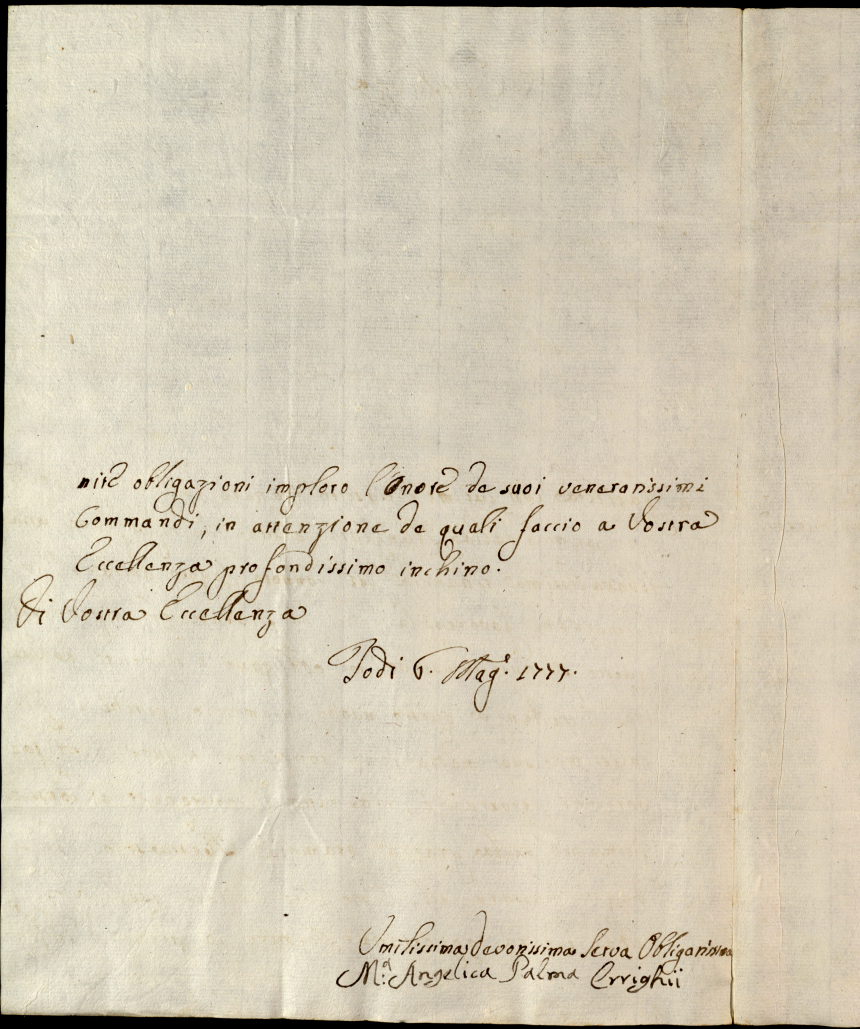 nite obligazioni imploro l'Onore de suoi veneratissimi
Commandi, in attenzione de quali faccio a Vostra
Eccellenza profondissimo inchino.
Di Vostra Eccellenza
Todi 6. Mag: 1777.
Umilissima devotissima Serva Obligatissima
M.a Angelica Palma Errighii